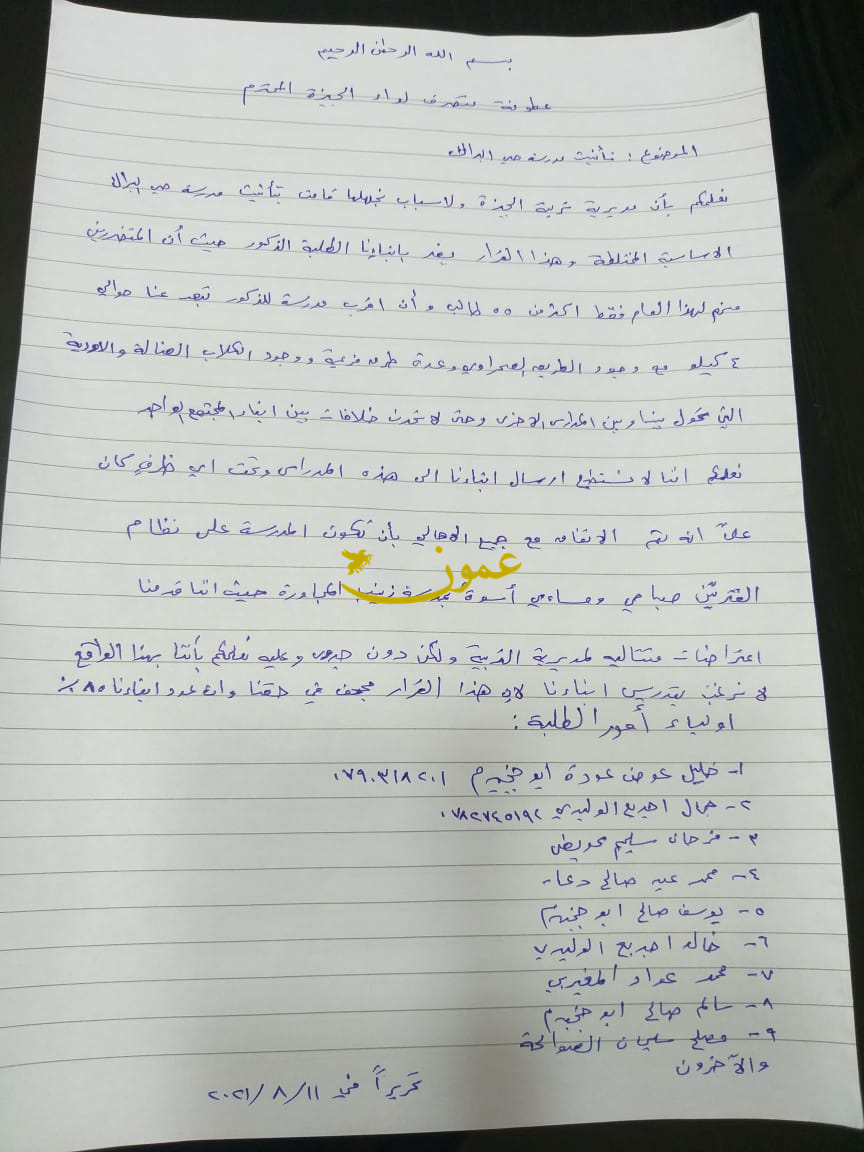 بسم الله الرحمن الرحيم
عطوفة متصرف لواء الجيزة المحترم
الموضوع : تأنيث مدرسة حي البراك
نعلمكم بأن مديرية تربية الجيزة ولاسباب نجهلها قامت بتأنيث مدرسة حي البراك
الاساسية المختلطة وهذا القرار يضر بابناءنا الطلبة الذكور حيث أن المتضررين
منهم لهذا العام فقط اكثر من ٥٥ طالب وأن اقرب مدرسة للذكور تبعد عنا حوالي
٤ كيلو مع وجود الطريق الصحراوي وعدة طرق فرعية ووجود الكلاب الضالة والاودية
التي تحول بيننا وبين المدارس الاخرى وحتى لا تحدث خلافات بين ابناء المجتمع الواحد
نعلمكم اننا لا نستطيع ارسال ابناءنا الى هذه المدراس وتحت اي ظرفٍ كان
علماً انه تم الاتفاق مع جميع الاهالي بأن تكون المدرسة على نظام
عمون
الفترتين صباحي ومسائي أسوة بمدرسة زينب المجاورة حيث اننا قدمنا
اعتراضات متتاليه لمديرية التربية ولكن دون جدوى وعليه نعلمكم بأننا بهذا الواقع
لا نرغب بتدريس ابناءنا لان هذا القرار مجحف في حقنا وان عدد ابناءنا ٨٥٪
اولياء أمور الطلبة :
١- خليل عوض عودة ابو خجيم ٠٧٩٠٣١٨٢٠١
٢- جمال اجديع الوليدي ٠٧٨٢٧٤٥١٩٢
٣- فرحان سليم
٤- محمد عيد صالح
٥- يوسف صالح ابو خجيم
٦- خالد اجديع الوليدي
٧- محمد عواد المغيربي
٨- سالم صالح ابو خجيم
٩- مصلح سليمان
والآخرون
تحريراً في ١١/ ٨/ ٢٠٢١